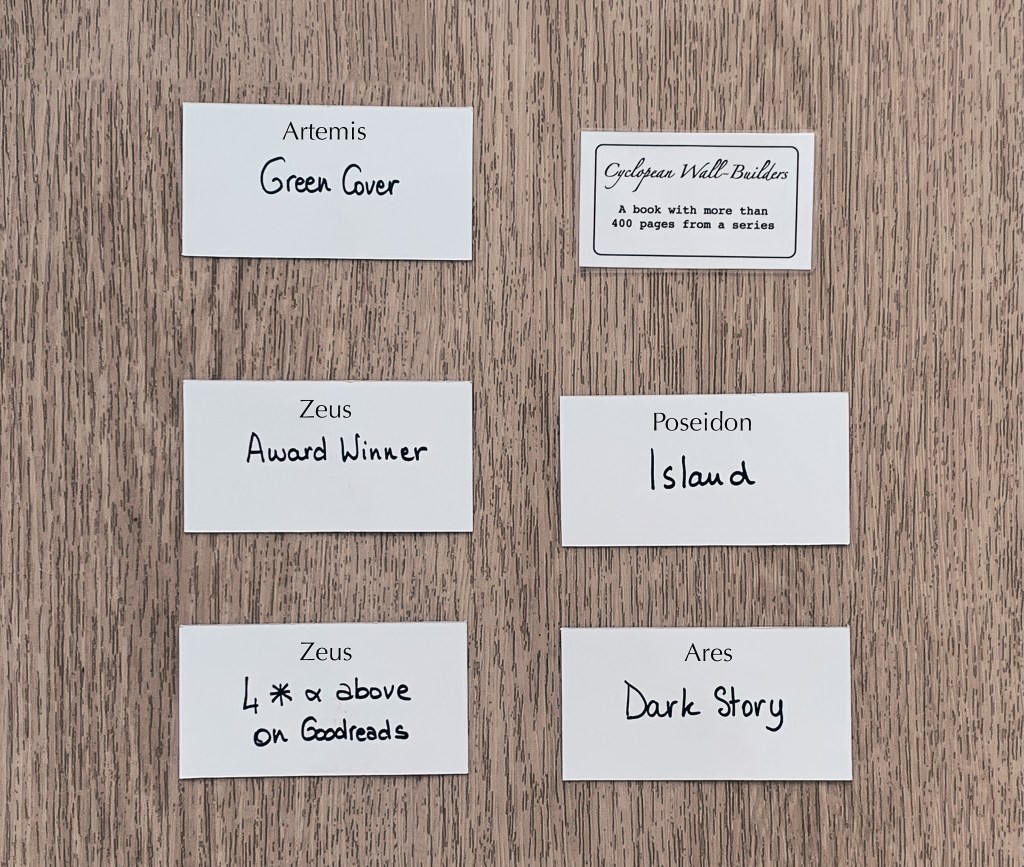 Artemis
Green Cover
Cyclopean Wall-Builders
A book with more than
400 pages from a series
Zeus
Award Winner
Poseidon
Island
Zeus
4 * & above
on Goodreads
Ares
Dark Story